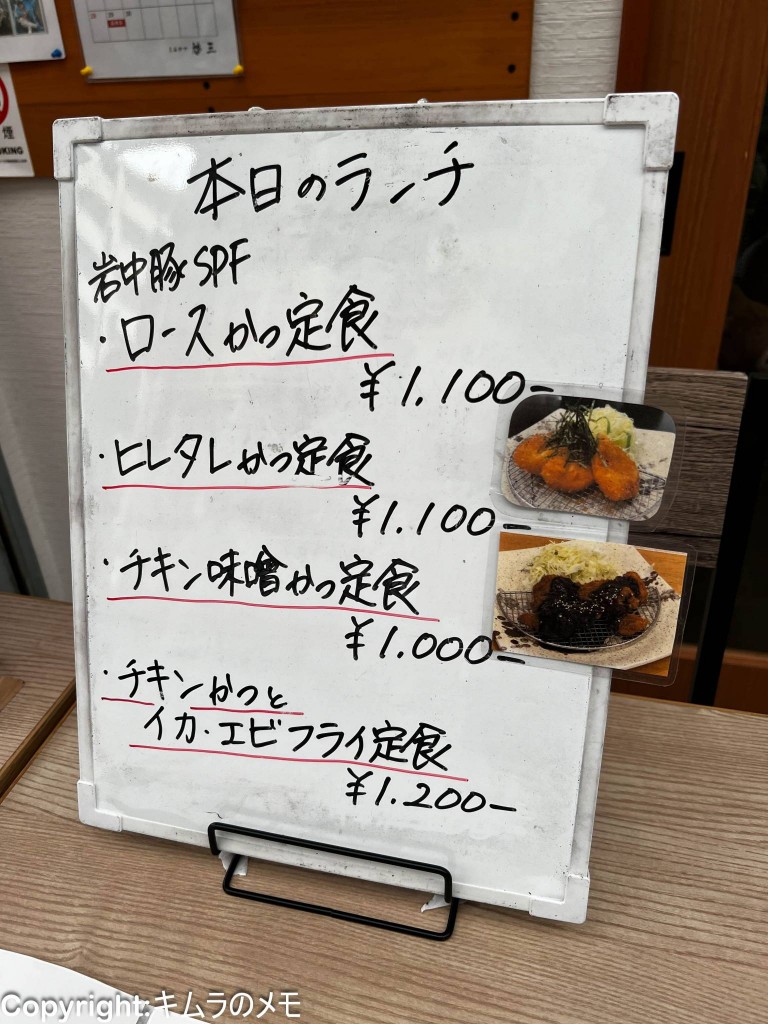 本日のランチ
岩中豚SPF
・ロースかつ定食
¥1.100-
・ヒレタレかつ定食
¥1.100-
・チキン味噌かつ定食
¥1.000-
・チキンかつと
イカ・エビフライ定食
¥1.200-
煙
Copyright:キムラのメモ